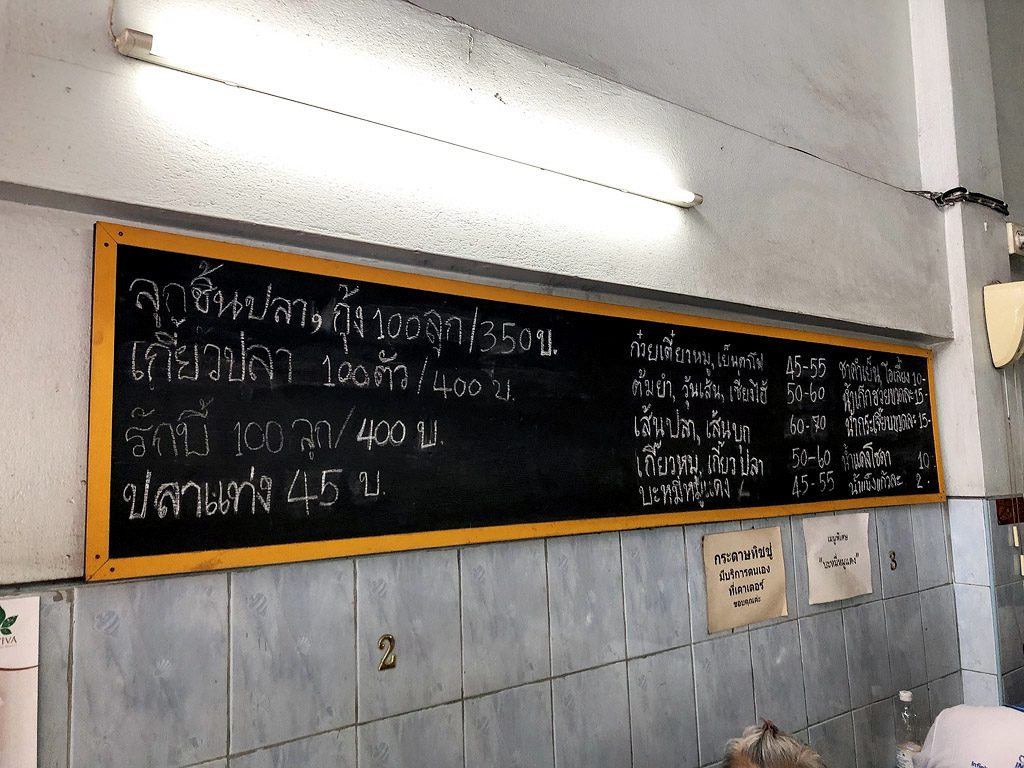 ลูกชิ้นปลา, กุ้ง 100 ลูก/350 บ.
เกี้ยวปลา 100 ตัว/400 บ.
รักบี้ 100 ลูก/400 บ.
ปลาแท่ง 45 บ.
ก๋วยเตี๋ยวหมู, เย็นตาโฟ 45-55
ต้มยำ, วุ้นเส้น, เซี่ยงไฮ้ 50-60
เส้นปลา, เส้นบุก 60-70
เกี้ยวหมู, เกี้ยวปลา 50-60
บะหมี่หมูแดง 45-55
ชาดำเย็น, โอเลี้ยง 10-
น้ำเก๊กฮวยขวดละ 15-
น้ำกระเจี๊ยบขวดละ 15-
น้ำแดงโซดา 10
น้ำแข็งแก้วละ 2.
กระดาษทิชชู่
มีบริการตนเอง
ที่เคาเตอร์
ขอบคุณค่ะ
เมนูพิเศษ
"บะหมี่หมูแดง"
2
3
IVA